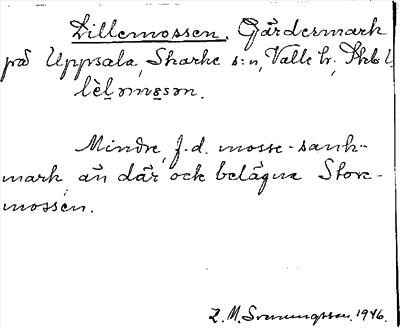 Lillemossen, Gärdesmark
på Uppsala, Skarke s:n, Valle h., Skbl.
lèl̠ɔmɵ̠sɔn.
Mindre, f.d. mosse-sank-
mark än där ock belägna Store-
mossen.
Z. M. Svenungsson. 1946.